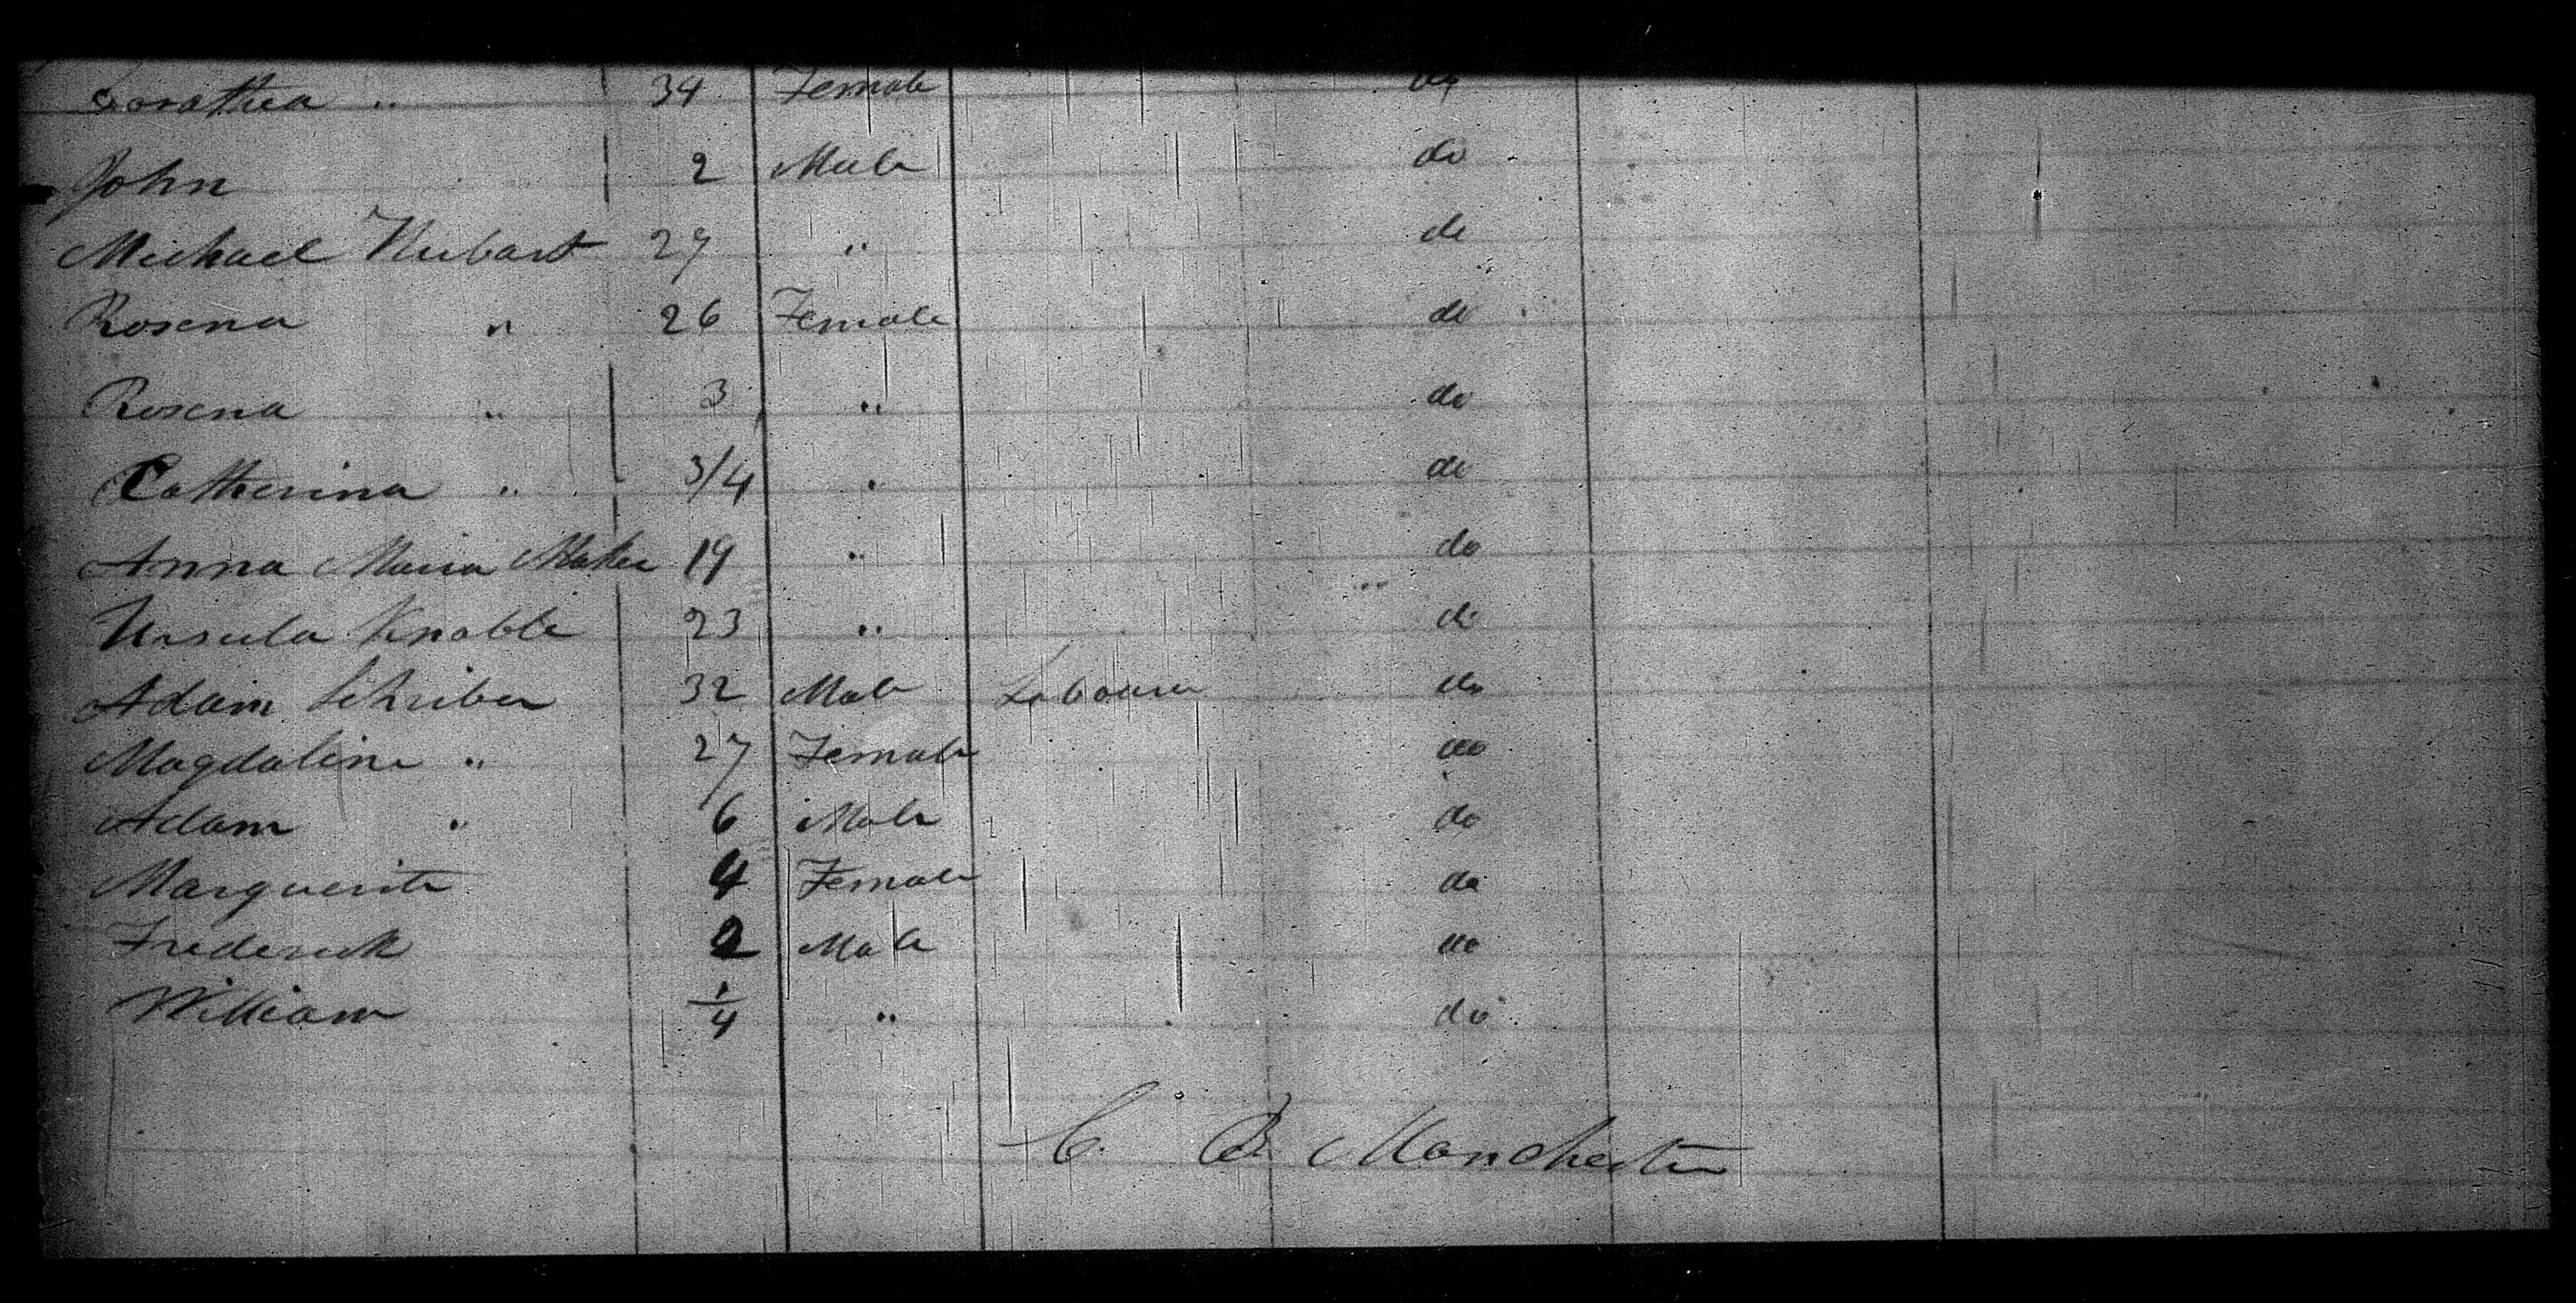 Dorathea " 34 Female do
John 2 Male do
Michael Hubart 27 " do
Rosena " 26 Female do
Rosena " 3 " do
Catherina " 3/4 " do
Anna Maria 19 " do
Ursula Knoble 23 " do
Adam Schriber 32 Male Labourer do
Magdaline " 27 Female do
Adam " 6 Male do
Marguerite 4 Female do
Frederick 2 Male do
William 1/4 " do
C. B. Manchester